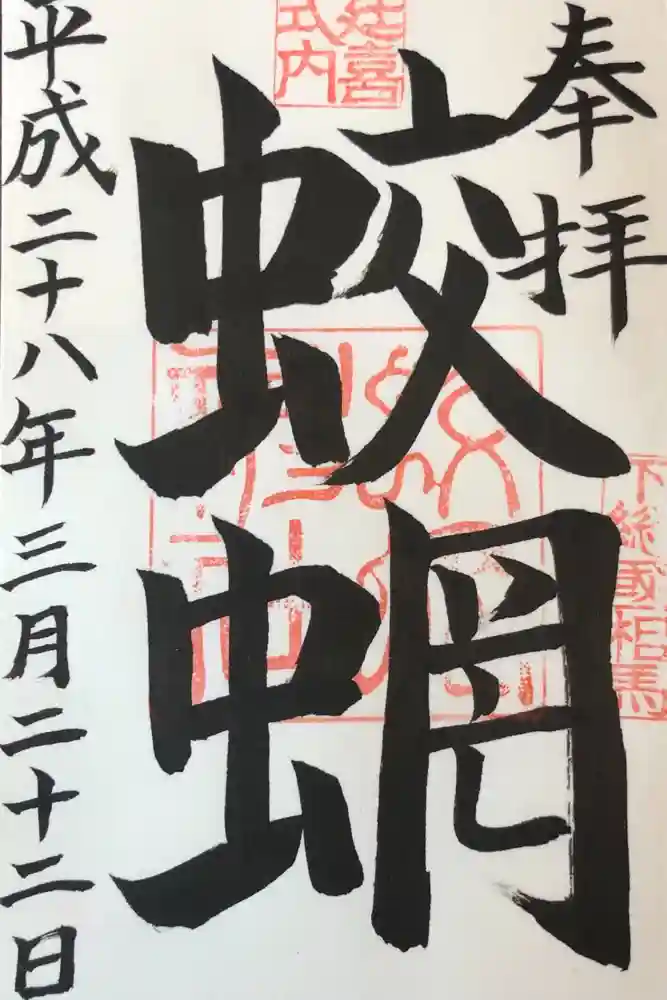 奉拝
延喜式内
下総國相馬
蛟蝄
平成二十八年三月二十二日